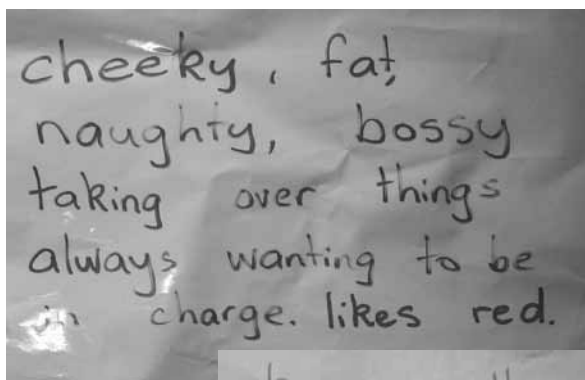 cheeky, fat,
naughty, bossy
taking over things
always wanting to be
in charge. likes red.